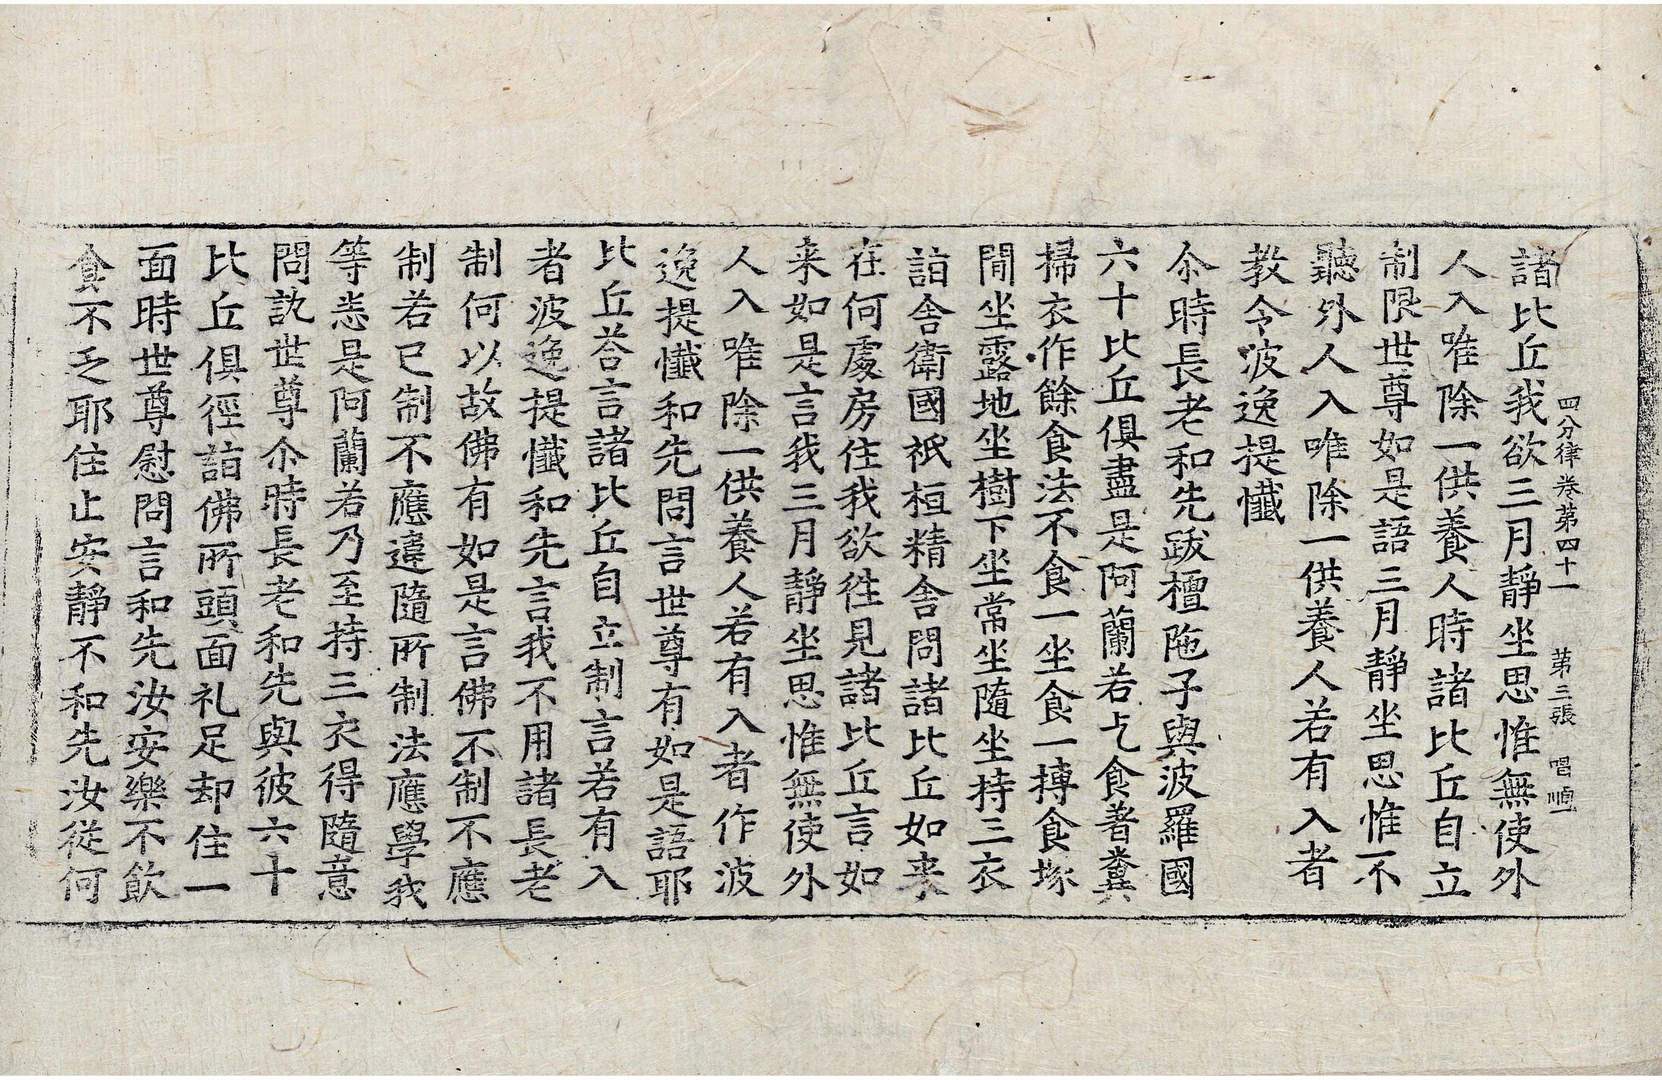 四分律卷第四十一 第三張 唱順
諸比丘我欲三月靜坐思惟無使外
人入唯除一供養人時諸比丘自立
制限世尊如是語三月靜坐思惟不
聽外人入唯除一供養人若有入者
教令波逸提懺
尒時長老和先跋檀陁子與波羅國
六十比丘俱盡是阿蘭若乞食著糞
掃衣作餘食法不食一坐食一摶食塚
閒坐露地坐樹下坐常坐隨坐持三衣
詣舍衛國祇桓精舍問諸比丘如来
在何處房住我欲徃見諸比丘言如
来如是言我三月靜坐思惟無使外
人入唯除一供養人若有入者作波
逸提懺和先問言世尊有如是語耶
比丘荅言諸比丘自立制言若有入
者波逸提懺和先言我不用諸長老
制何以故佛有如是言佛不制不應
制若已制不應違隨所制法應學我
等悉是阿蘭若乃至持三衣得隨意
問訊世尊尒時長老和先與彼六十
比丘俱徑詣佛所頭面礼足却住一
面時世尊慰問言和先汝安樂不飲
食不乏耶住止安靜不和先汝從何